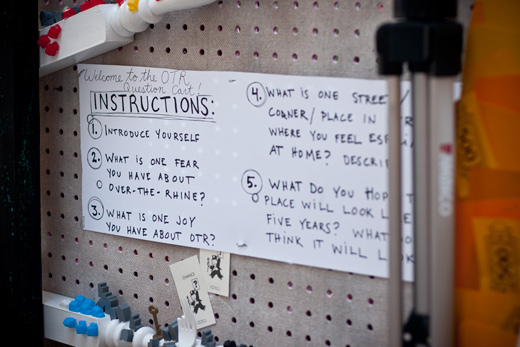 Welcome to the OTR
Question Cart!
INSTRUCTIONS:
1. INTRODUCE YOURSELF
2. WHAT IS ONE FEAR
YOU HAVE ABOUT
OVER-THE-RHINE?
3. WHAT IS ONE JOY
YOU HAVE ABOUT OTR?
4. WHAT IS ONE STREET
CORNER/ PLACE IN
WHERE YOU FEEL
AT HOME?
5. WHAT DO YOU
PLACE WILL LOOK
FIVE YEARS? WHAT
THINK IT WILL
CHANCE